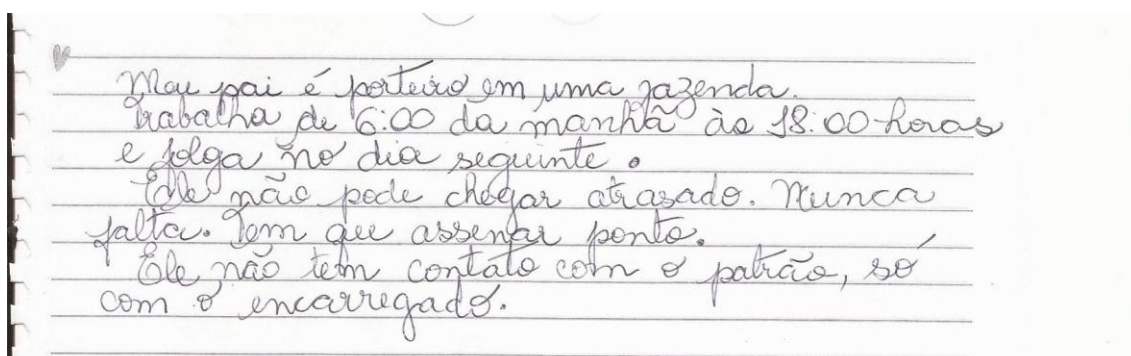 Meu pai é porteiro em uma fazenda.
Trabalha de 6:00 da manhã às 18:00 horas
e folga no dia seguinte.
Ele não pode chegar atrasado. Nunca
falta. Tem que assenar ponto.
Ele não tem contato com o patrão, só
com o encarregado.